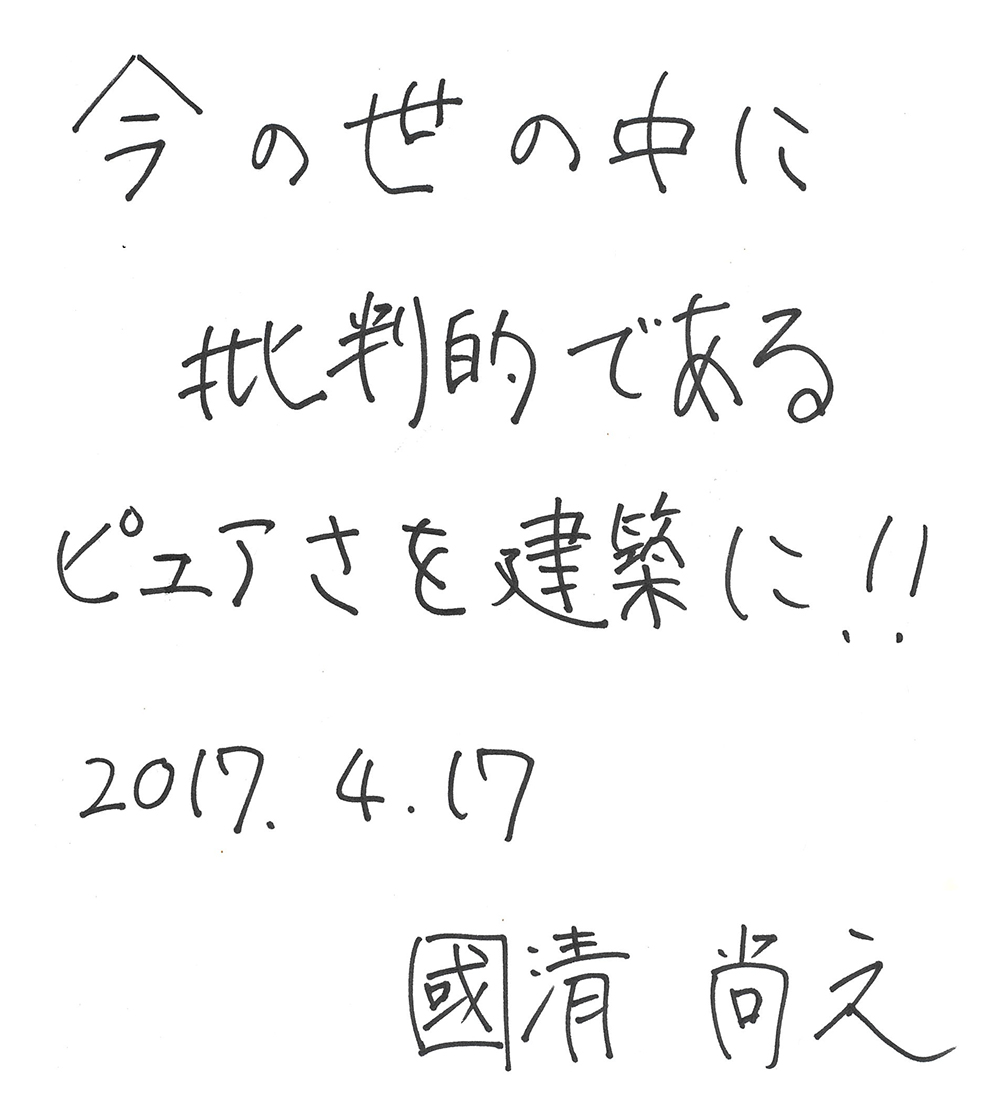 今の世の中に
批判的である
ピュアさを建築に!!
2017.4.17
國清 尚之